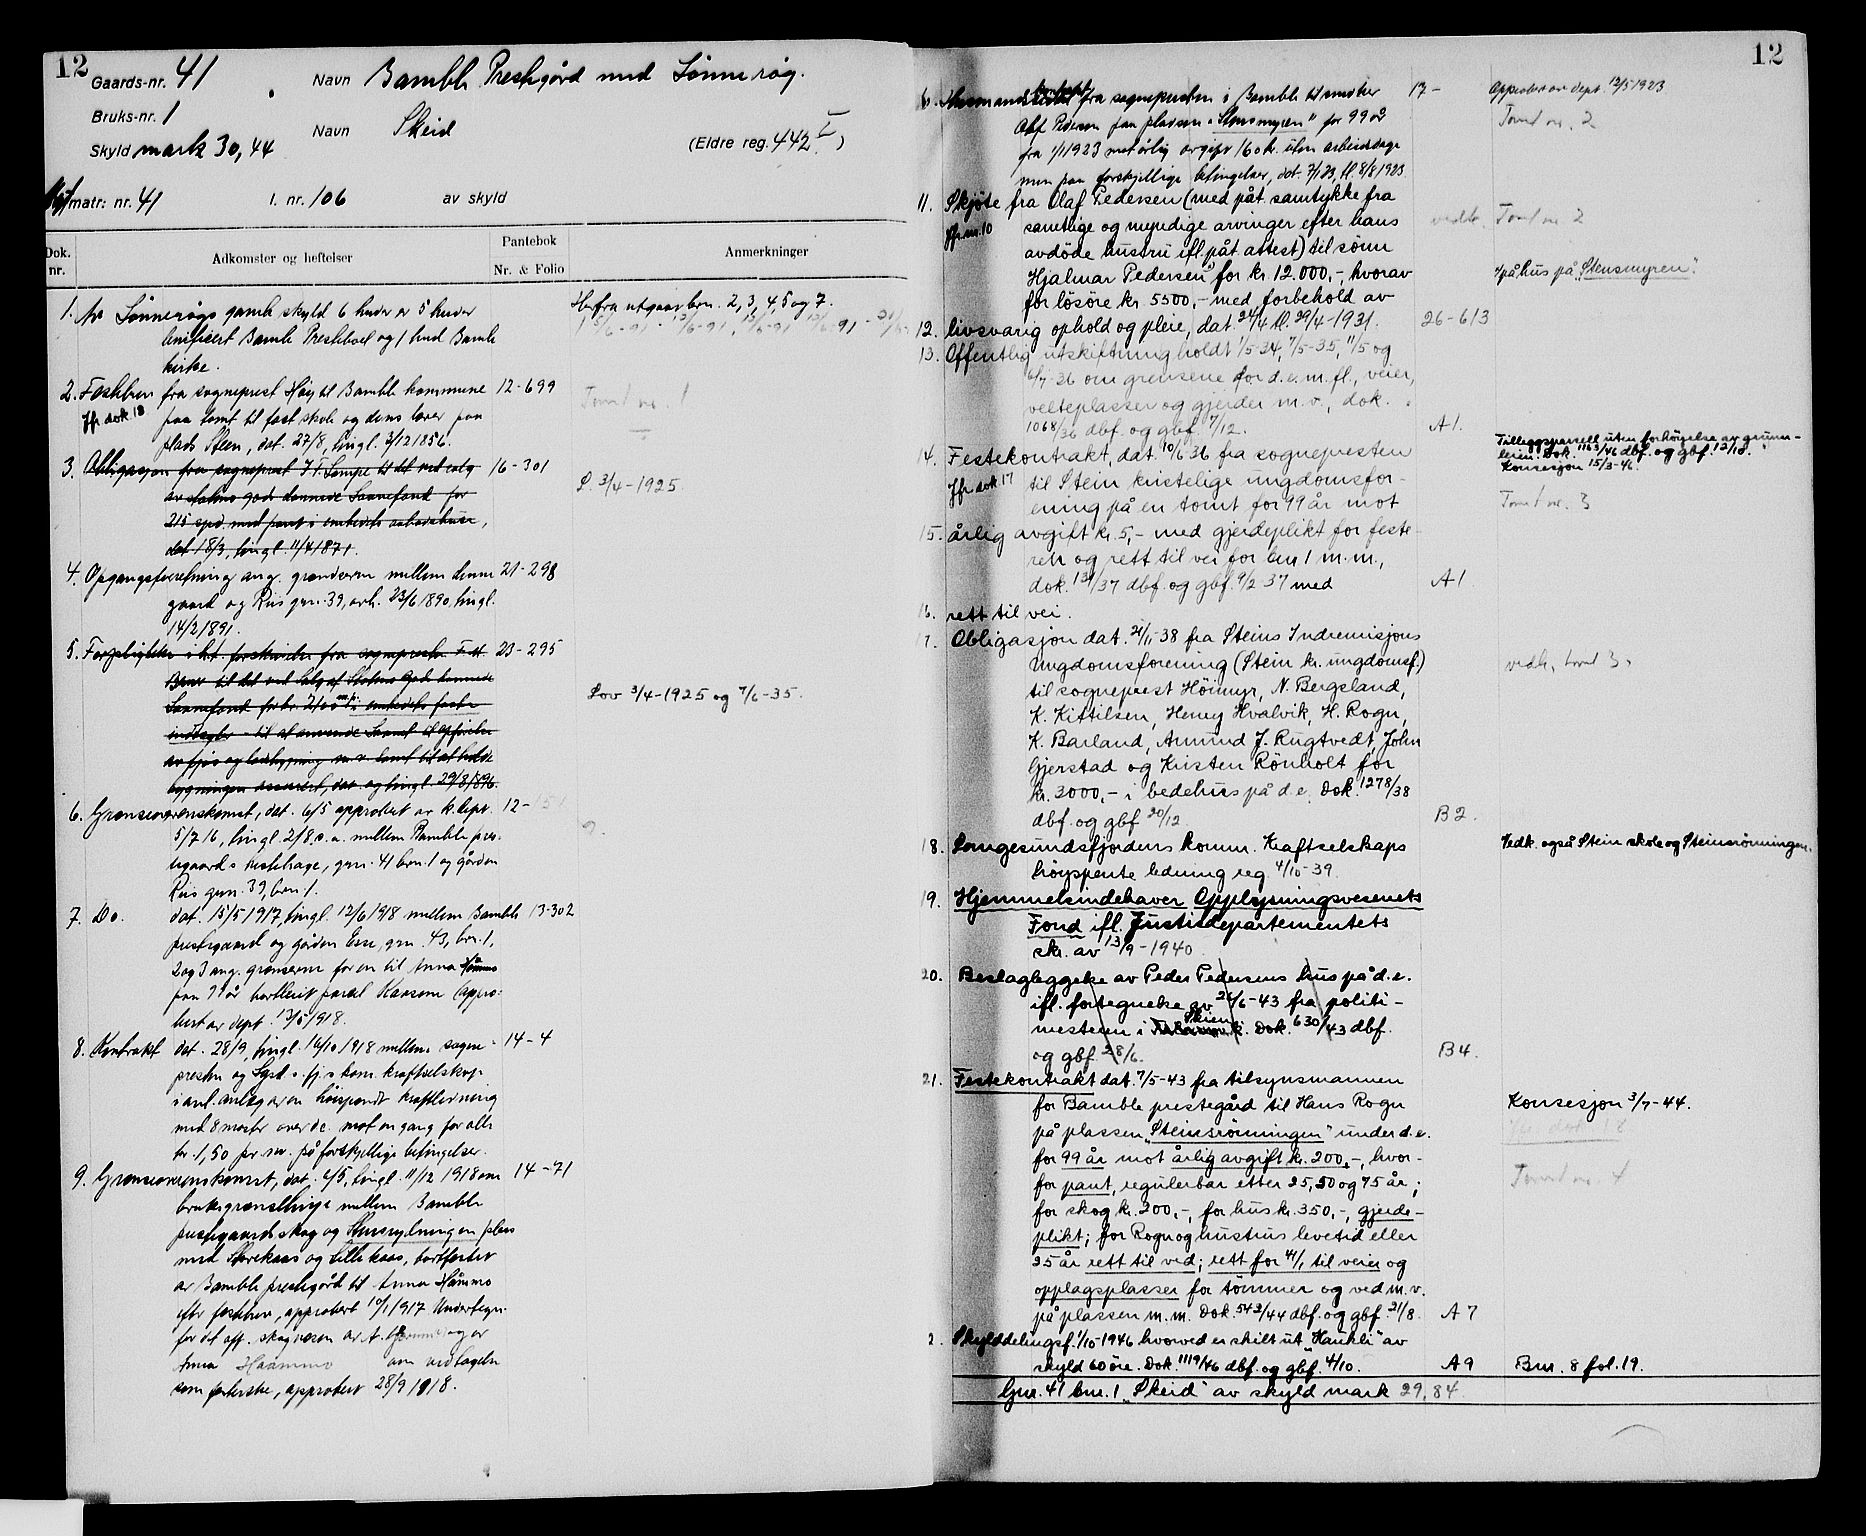 12
Gaards-nr. 41 Navn Bamble Prestegård med Sönnerög.
Bruks-nr. 1
Navn Skeid
Skyld mark 30,44 (Eldre reg. 442 I)
matr: nr. 41 l. nr. 106 av skyld
Dok. nr. Adkomster og heftelser Pantebok Nr. & Folio Anmerkninger
1. Av Sönnerögs gamle skyld 6 huder er 5 huder
benificert Bamble Presteboel og 1 hud Bamble
kirke.
Herfra utgaar brn. 2, 3, 4, 5 og 7.
2. Festebrev fra sogneprest Höy til Bamble kommune 12-699
Jfr dok 18 paa tomt til fast skole og dens lærer paa
plads Steen, dat. 27/8, tingl. 3/12 1856.
Tomt nr. 1
3. Obligasjon fra sogneprest J. F. Lampe til det ved salg 16-301
av gods dannede Laanefond for
215 spd. med pant i embedets aabodshuse,
dat 18/3, tingl. 11/4 1871.
L. 3/4-1925
4. Opgangsforretning ang. grænderne mellem denne 21-298
gaard og Riis gnr. 39, avh. 23/6 1890, tingl.
14/2 1891.
5. Forpligtelse i h.t. forskrivelse fra sogneprest 23-295
til det ved salg af gods dannede
Laanefond for kr. 2100 m.p. i embedets faste
indtægter - til at anvende laanet til opförelse
av fjös og ladebygning samt til at holde
bygningen assurert, dat. og tingl. 29/8 1896.
Lov 3/4-1925 og 7/6-35.
6. Grænseoverenskomst, dat. 6/5 approbert av k. dept. 12-151
5/7 16, tingl. 2/8 s. a. mellem Bamble pres-
tegaards hestehage, gnr. 41 brn. 1 og gården
Riis gnr. 39, brn. 1.
7. Do. dat. 15/5 1917, tingl. 12/6 1918 mellem Bamble 13-302
prestegaard og gården Esse, gnr. 43, brn. 1,
2 og 3 ang. grænserne for en til Anna Håmmo
paa 99 år bortleiet parcel Kaasene (appro-
bert av dept. 13/5 1918.
8. Kontrakt dat. 28/9, tingl. 16/10 1918 mellem sogne- 14-4
presten og Lgsd. s. fj. s kom. kraftselskap
i anl. anlæg av en höispændt kraftledning
med 8 master over de. mot en gang for alle
kr. 1,50 pr. m. på forskjellige betingelser.
9. Grænseoverenskomst, dat. 4/5, tingl. 11/12 1918 om 14-71
bruksgrænselinje mellem Bamble
prestegaards skog og Stensrydningen plass
med Storekaas og Lille kaas, bortfestet
av Bamble prestegård til Anna Håmmo
efter festebrev, approbert 10/1 1917 Undertegn.
for det off. skogvesen av A. og av
Anna Haammo som vedtagelse
som festerske, approbert 28/9 1918.
12
Husmandskontrakt fra sognepresten i Bamble til smöker 17-
Olaf Pedersen paa pladsen "Stensmyren" for 99 år
fra 1/1 1923 mot årlig avgift 160 kr. uten arbeidsdage
men paa forskjellige betingelser, dat. 2/1 23, tl. 8/8 1923
Approbert av dept. 12/5 1923
Tomt nr. 2
11. Skjöte fra Olaf Pedersen (med påt. samtykke fra
Jfr. nr. 10 samtlige og myndige arvinger efter hans
avdöde hustru ifl. påt. attest) til sönn
Hjalmar Pedersen for kr. 12.000,-, hvorav
for lösöre kr. 5500,- med forbehold av
12. livsvarig ophold og pleie, dat. 24/4 tl. 29/4-1931. 26-613
vedk. Tomt nr. 2
på hus på "Stensmyren".
13. Offentlig utskiftning holdt 1/5-34, 7/5-35, 11/5 og
6/7-36 om grensene for d. e. m. fl., veier,
velteplasser og gjerder m. v., dok.
1068/36 dbf. og gbf. 7/12. A1.
Tilleggsparsell uten forhöyelse av grunn-
leien. Dok. 1163/46 dbf. og gbf. 12/10.
Konsesjon 15/3-46.
14. Festekontrakt, dat. 10/6 36 fra sognepresten
Jfr dok 17 til Stein kristelige ungdomsfor-
ening på en tomt for 99 år mot
Tomt nr. 3
15. årlig avgift kr. 5,- med gjerdeplikt for feste-
ren og rett til vei for bnr 1 m. m.,
dok. 131/37 dbf. og gbf. 9/2 37 med A1
16. rett til vei.
17. Obligasjon dat. 21/11-38 fra Steins Indremisjons
Ungdomsforening (Stein kr. ungdomsf.)
til sogneprest Höimyr, N. Bergsland,
K. Kittilsen, Henry Hvalvik, H. Rogn,
K. Barland, Amund J. Rugtvedt, John
Gjerstad og Kristen Rönholt for
kr. 3000,- i bedehus på d. e. Dok. 1278/38
dbf. og gbf 20/12 B2.
vedk. tomt 3.
18. Langesundsfjordens komm. Kraftselskaps
höyspente ledning reg. 4/10-39.
Vedk. også Stein skole og Steinsrönningen.
19. Hjemmelsindehaver Opplysningsvesenets
Fond ifl. Justisdepartementets
skr. av 13/9-1940
20. Beslagleggelse av Peder Pedersens hus på d. e.
ifl. fortegnelse av 24/6-43 fra politi-
mesteren i Skien. Dok. 630/43 dbf.
og gbf. 28/6. B4.
21. Festekontrakt dat. 7/5-43 fra tilsynsmannen
for Bamble prestegård til Hans Rogn
på plassen "Steinsrönningen" under d. e.
for 99 år mot årlig avgift kr. 200,-, hvor-
for pant, regulerbar etter 25, 50 og 75 år;
for skog kr. 200,-, for hus kr. 350,-, gjerde-
plikt; for Rogn og hustrus levetid eller
25 år rett til ved; rett for 41/1 til veier og
opplagsplasser for tömmer og ved m. v.
på plassen m. m. Dok. 542/44 dbf. og gbf. 21/8. A7
Konsesjon 3/7-44.
Tomt nr. 4
2. Skylddelingsf. 1/10-1946 hvorved er skilt ut "Haukeli" av
skyld 60 öre. Dok. 1119/46 dbf. og gbf. 4/10. A9 Bnr. 8 fol. 19.
Gnr. 41 bnr. 1 "Skeid" av skyld mark 29,84.